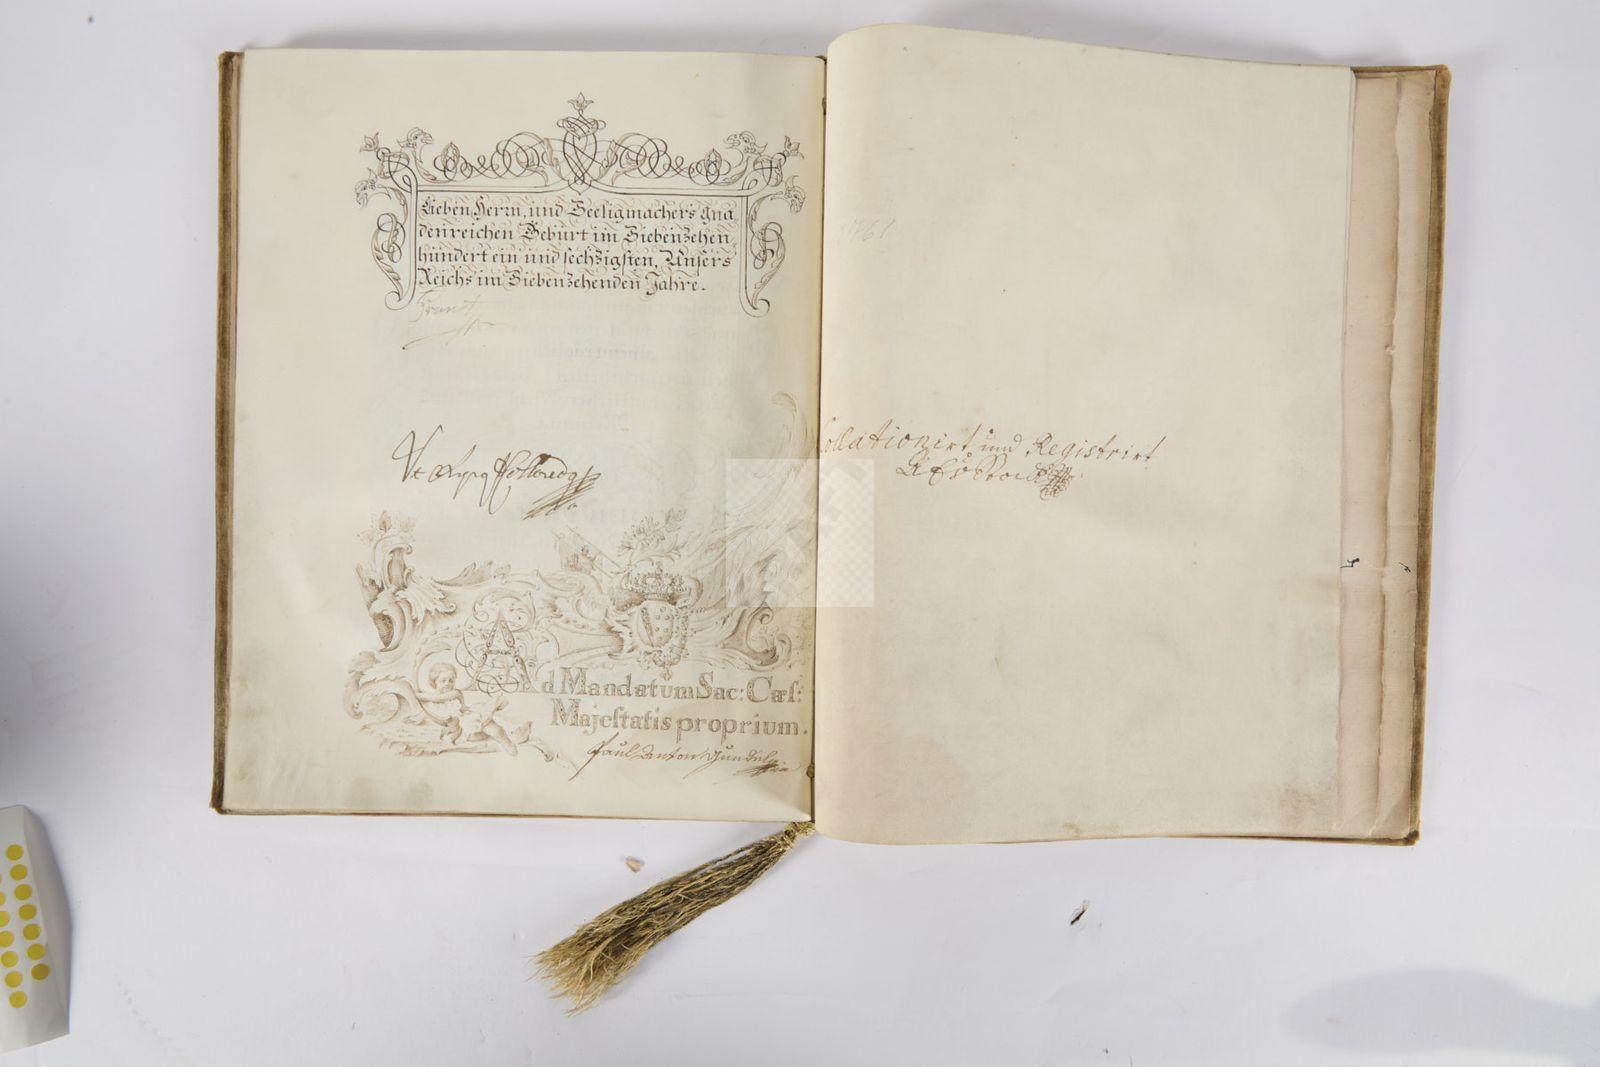 Lieben Herrn, und Seeligmachers gna
denreichen Geburt im Siebenzehen
hundert ein und sechzigsten, Unsers
Reichs im Siebenzehenden Jahre.
Franz
Vt
Ad Mandatum Sac: Cæs:
Majestatis proprium.
Paul Anton Gundel
1761
Collationirt und Registrirt